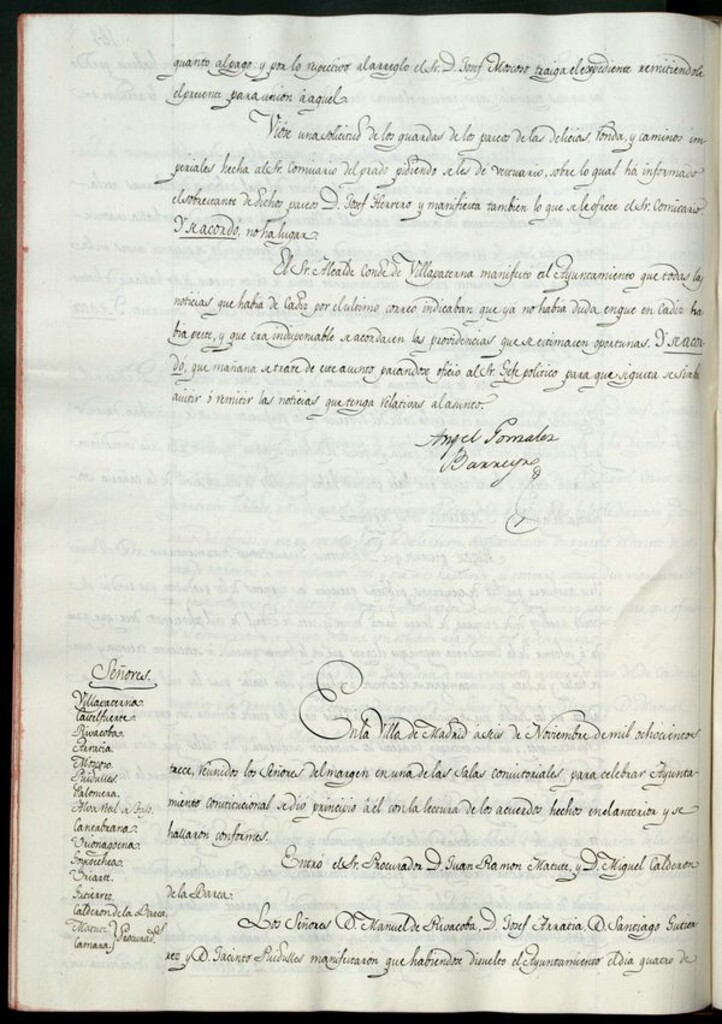 quanto al pago: y por lo respectivo al arreglo el Sr. D. Josef Moscoso traiga el expediente remitiendole
el presente para union à aquel.
Vióse una solicitud de los guardas de los paseos de las delicias, ronda, y caminos im-
periales hecha al Sr. Comisario del prado pidiendo se les de vestuario, sobre lo qual há informado
el sobrestante de dichos paseos D. Josef Herrero y manifiesta tambien lo que se le ofrece el Sr. Comisario.
Y se acordó, no ha lugar.
El Sr. Alcalde Conde de Villapaterna manifestó al Ayuntamiento que todas las
noticias que habia de Cadiz por el ultimo correo indicaban que yá no habia duda en que en Cadiz ha-
bia peste, y que era indispensable se acordasen las providencias que se estimasen oportunas. Y se acor-
dó, que mañana se trate de este asunto pasandose oficio al Sr. Gefe politico para que si gusta se sirba
asistir ó remitir las noticias que tenga relativas al asunto.
Angel Gonzalez
Barreyro
Señores.
Villapaterna.
Castelfuerte.
Rivacoba.
Arratia.
Puidulles.
Palomera.
Cantabrana.
Goycochea.
Uriarte.
Gutierrez.
Calderon de la Barca.
Matute.
Camara.
En la Villa de Madrid à seis de Noviembre de mil ochocientos
trece, reunidos los Señores del margen en una de las salas consistoriales, para celebrar Ayunta-
miento constitucional se dió principio à él con la lectura de los acuerdos hechos en el anterior y se
hallaron conformes.
Entró el Sr. Procurador D. Juan Ramon Matute, y D. Miguel Calderon
de la Barca.
Los Señores D. Manuel de Rivacoba, D. Josef Arratia, D. Santiago Gutier-
rez y D. Jacinto Puidulles manifestaron que habiendose disuelto el Ayuntamiento el dia quatro de